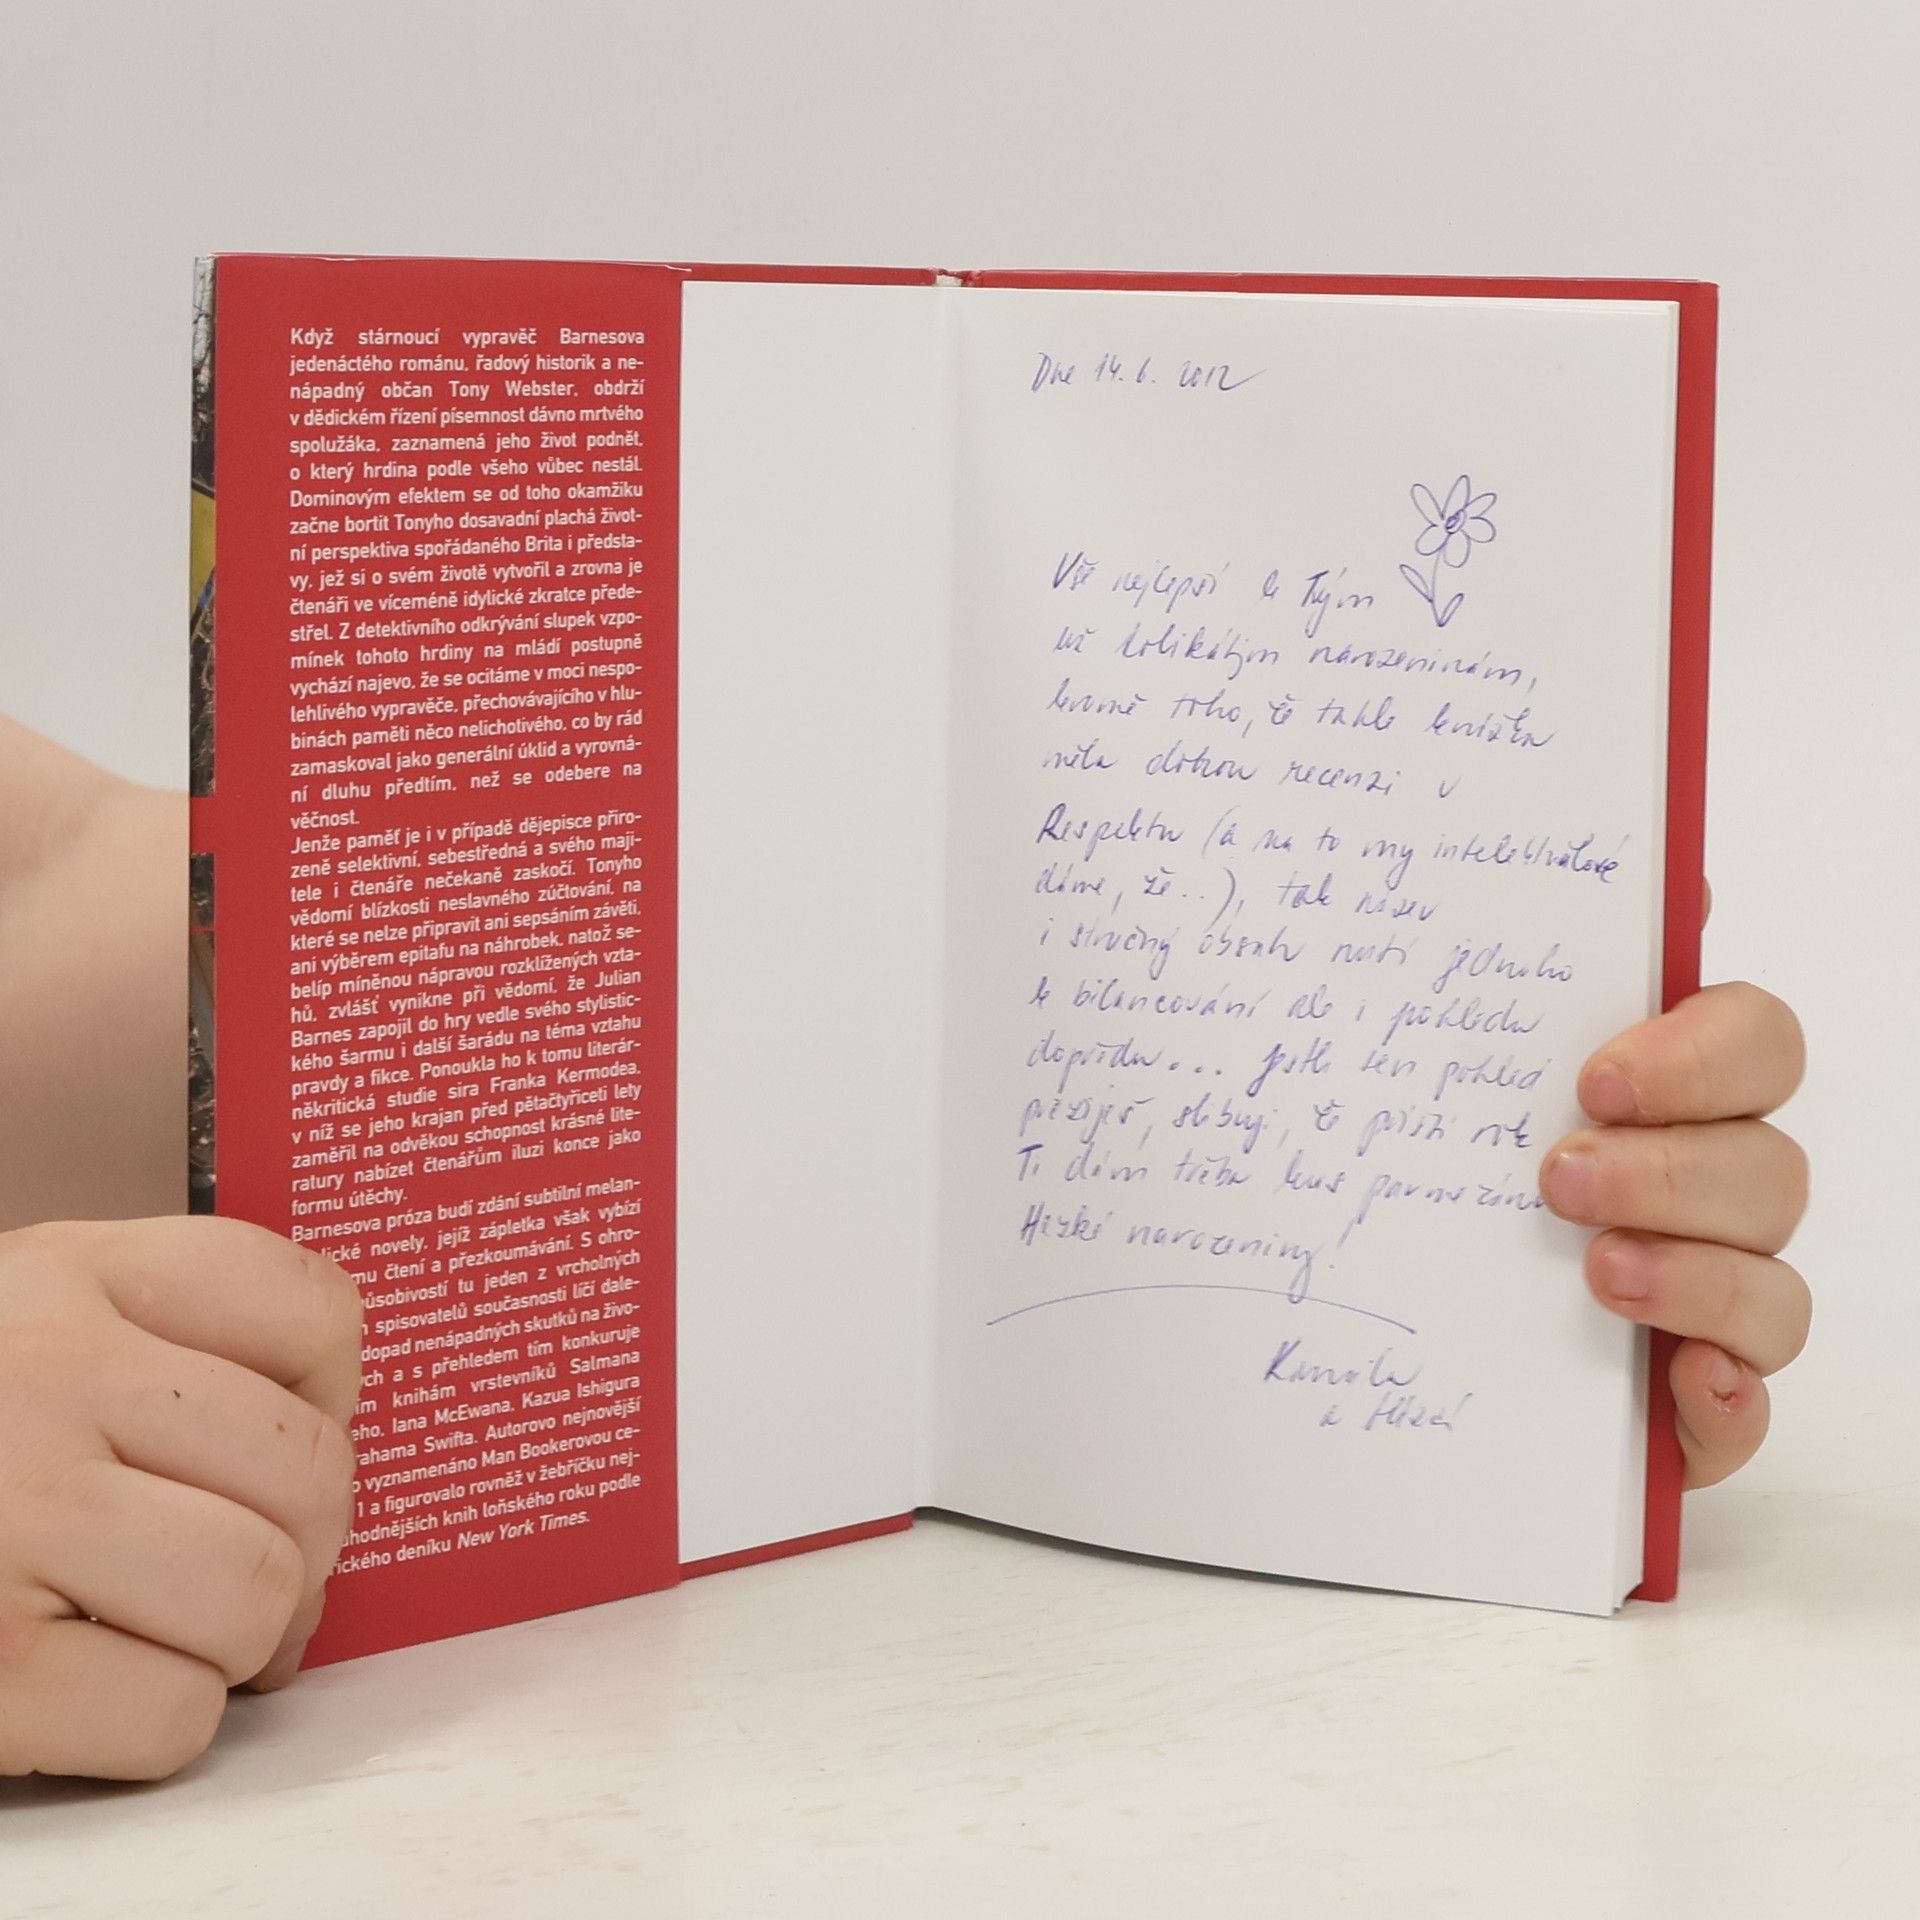 Když stárnoucí vypravěč Barnesova
jedenáctého románu, řadový historik a ne-
nápadný občan Tony Webster, obdrží
v dědickém řízení písemnost dávno mrtvého
spolužáka, zaznamená jeho život podnět,
o který hrdina podle všeho vůbec nestál.
Dominovým efektem se od toho okamžiku
začne bortit Tonyho dosavadní plachá život-
ní perspektiva spořádaného Brita i předsta-
vy, jež si o svém životě vytvořil a zrovna je
čtenáři ve víceméně idylické zkratce přede-
střel. Z detektivního odkrývání slupek vzpo-
mínek tohoto hrdiny na mládí postupně
vychází najevo, že se ocitáme v moci nespo-
lehlivého vypravěče, přechovávajícího v hlu-
binách paměti něco nelichotivého, co by rád
zamaskoval jako generální úklid a vyrovná-
ní dluhu předtím, než se odebere na
věčnost.
Jenže paměť je i v případě dějepisce přiro-
zeně selektivní, sebestředná a svého maji-
tele i čtenáře nečekaně zaskočí. Tonyho
vědomí blízkosti neslavného zúčtování, na
které se nelze připravit ani sepsáním závěti,
ani výběrem epitafu na náhrobek, natož se-
belíp míněnou nápravou rozklížených vzta-
hů, zvlášť vynikne při vědomí, že Julian
Barnes zapojil do hry vedle svého stylistic-
kého šarmu i další šarádu na téma vztahu
pravdy a fikce. Ponoukla ho k tomu literár-
někritická studie sira Franka Kermodea,
v níž se jeho krajan před pětačtyřiceti lety
zaměřil na odvěkou schopnost krásné lite-
ratury nabízet čtenářům iluzi konce jako
formu útěchy.
Barnesova próza budí zdání subtilní melan-
lické novely, jejíž zápletka však vybízí
mu čtení a přezkoumávání. S ohro-
ůsobivostí tu jeden z vrcholných
h spisovatelů současnosti líčí dale-
dopad nenápadných skutků na živo-
ých a s přehledem tím konkuruje
ím knihám vrstevníků Salmana
eho, Iana McEwana, Kazua Ishigura
rahama Swifta. Autorovo nejnovější
o vyznamenáno Man Bookerovou ce-
1 a figurovalo rovněž v žebříčku nej-
hodnějších knih loňského roku podle
rického deníku New York Times.
Dne 14. 6. 2012
Vše nejlepší k Tvým
už tolikátým narozeninám,
kromě toho, že tahle knížka
měla dobrou recenzi v
Respektu (a na to my intelektuálové
dáme, že..), tak název
i stručný obsah nutí jednoho
k bilancování ale i pohledu
dopředu... Jestli ten pohled
přežiješ, slibuji, že příští rok
Ti dám třeba kus parmezánu
Hezké narozeniny!
Kamila
a